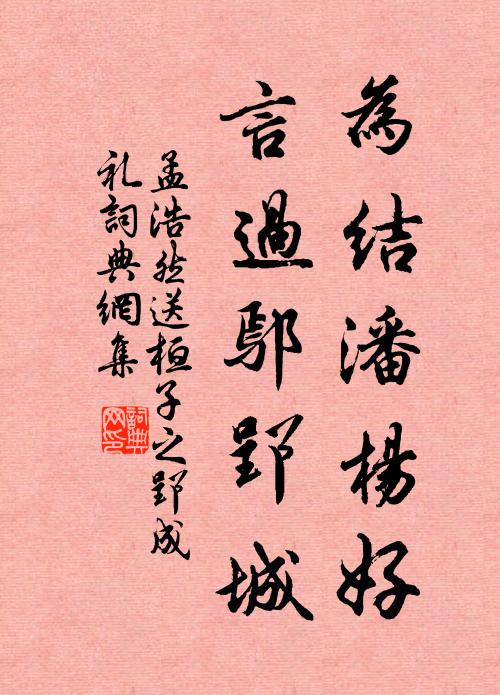 為結潘楊好
言過鄢郢城
孟浩然送桓子之郢成
礼詞典網集
詞典
网印